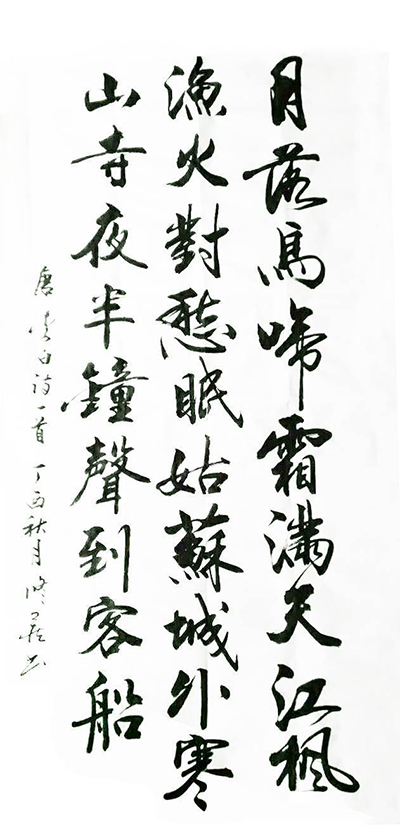 月落烏啼霜滿天江楓
漁火對愁眠姑蘇城外寒
山寺夜半鐘聲到客船
唐李白诗一首丁酉秋月修书